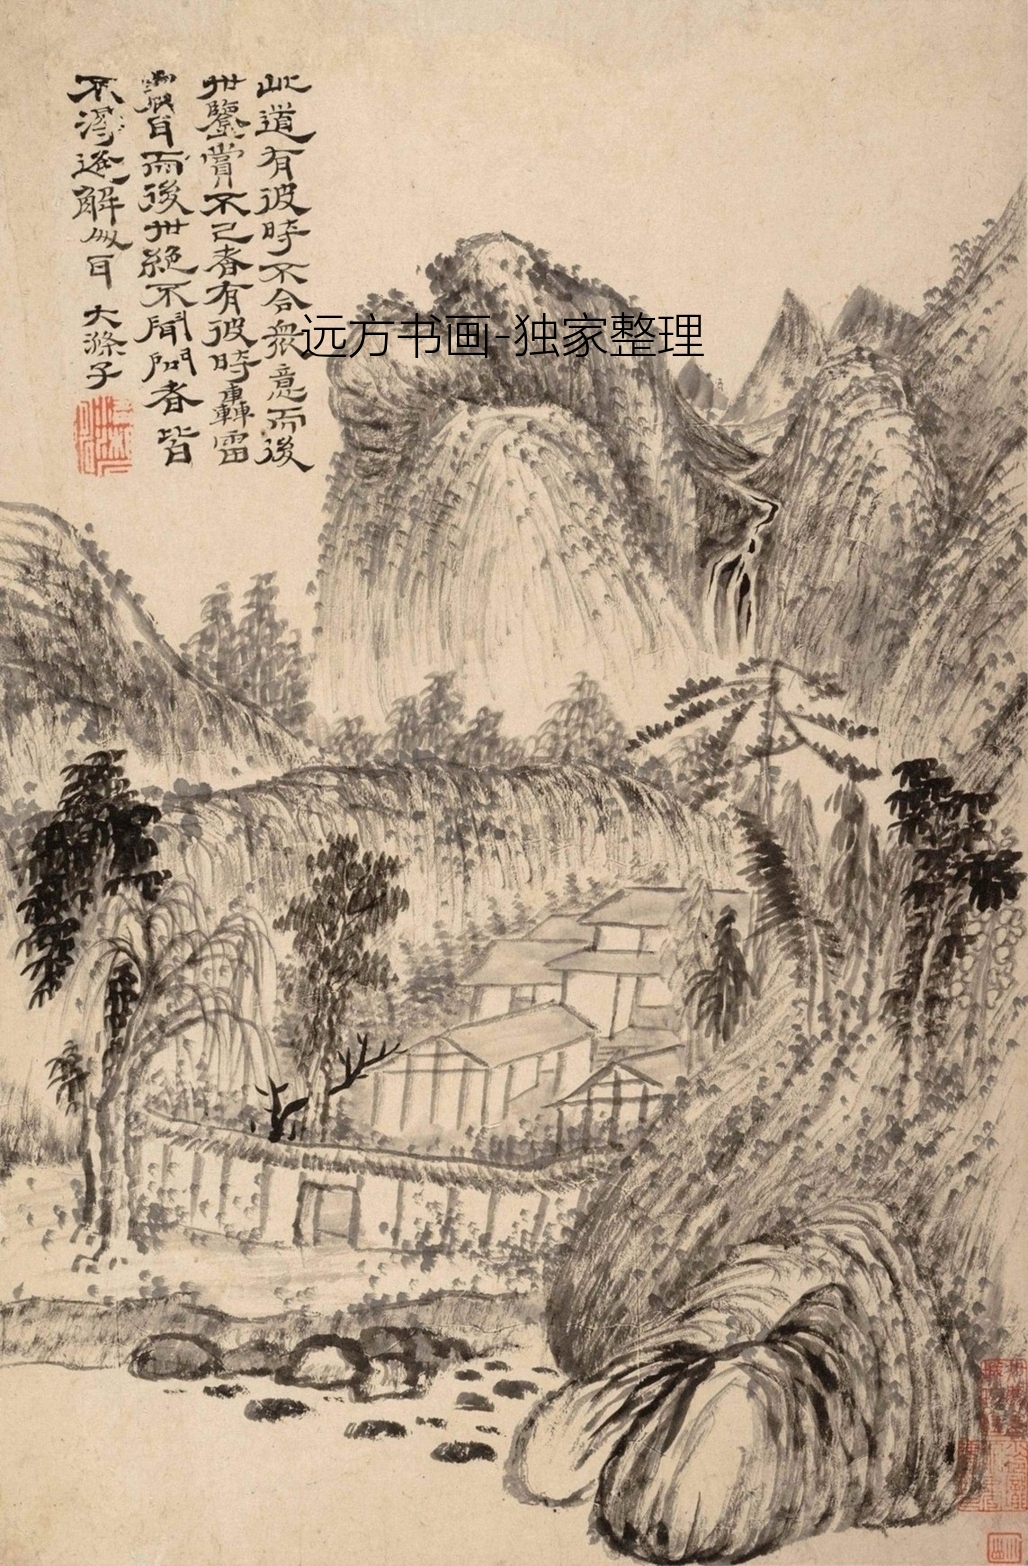 此道有彼時不合衆意而後
世鑒賞不已者有彼時轟雷
震耳而後世絕不聞問者皆
不得逆解似耳 大滌子
远方书画-独家整理